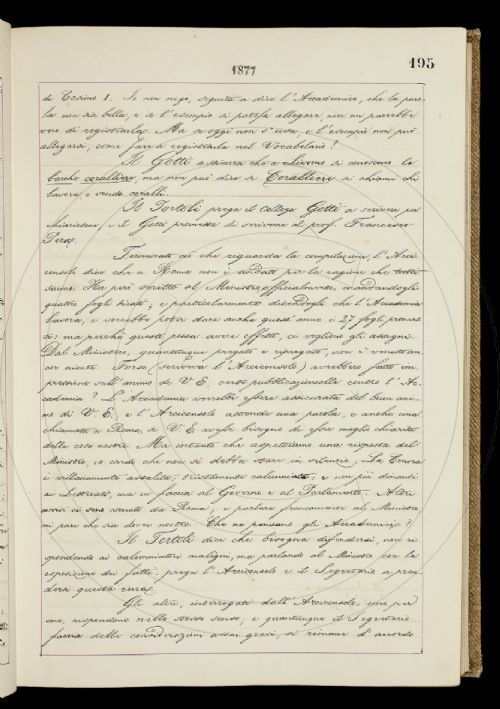 195
1877
di Cosimo I. Io non nego, seguita a dire l'Accademico, che la paro-
la non sia bella, e se l'esempio si potesse allegare non mi parrebbe
vero di registrarla. Ma se oggi non s'usa, e l'esempio non può
allegarsi, come farsi a registrarla nel Vocabolario?
Il Gotti assicura che a Livorno si conoscono le
barche coralliere, ma non può dire se Coralliere si chiami chi
lavora e vende coralli.
Il Tortoli prega il collega Gotti a scrivere per
chiarirsene, e il Gotti promette di scriverne al prof. Francesco
Pera.
Terminato ciò che riguarda la compilazione, l'Arci-
consolo dice che a Roma non è andato per la ragione che tutti
sanno. Ha però scritto al Ministro officialmente, mandandogli
quattro fogli tirati, e particolarmente dicendogli che l'Accademia
lavora, e vorrebbe poter dare anche quest'anno i 27 fogli promes-
si: ma perchè questo possa avere effetto, ci vogliono gli assegni.
Dal Ministero, quantunque pregato e ripregato, non è venuto an-
cor niente. Forse (scriveva l'Arciconsolo) avrebbero fatto im-
pressione sull'animo di V. E. certe pubblicazioncelle contro l'Ac-
cademia? L'Accademia vorrebbe essere assicurata del buon ani-
mo di V. E., e l'Arciconsolo attende una parola, o anche una
chiamata a Roma, se V. E. avesse bisogno di esser meglio chiarita
delle cose nostre. Ma intanto che aspettiamo una risposta del
Ministro, io credo che non si debba stare in silenzio. La Crusca
è villanamente assalita, tristamente calunniata, e non più dinanzi
ai Letterati, ma in faccia al Governo e al Parlamento. Altri
avvisi ci sono venuti da Roma; e parlare francamente al Ministro
mi pare che sia dover nostro. Che ne pensano gli Accademici?
Il Tortoli dice che bisogna difendersi, non ri-
spondendo ai calunniatori maligni, ma parlando al Ministro con la
esposizione dei fatti: prega l'Arciconsolo e il Segretario a pren-
dersi questa cura.
Gli altri, interrogati dall'Arciconsolo uno per
uno, rispondono nello stesso senso; e quantunque il Segretario
faccia delle considerazioni assai gravi, si rimane d'accordo